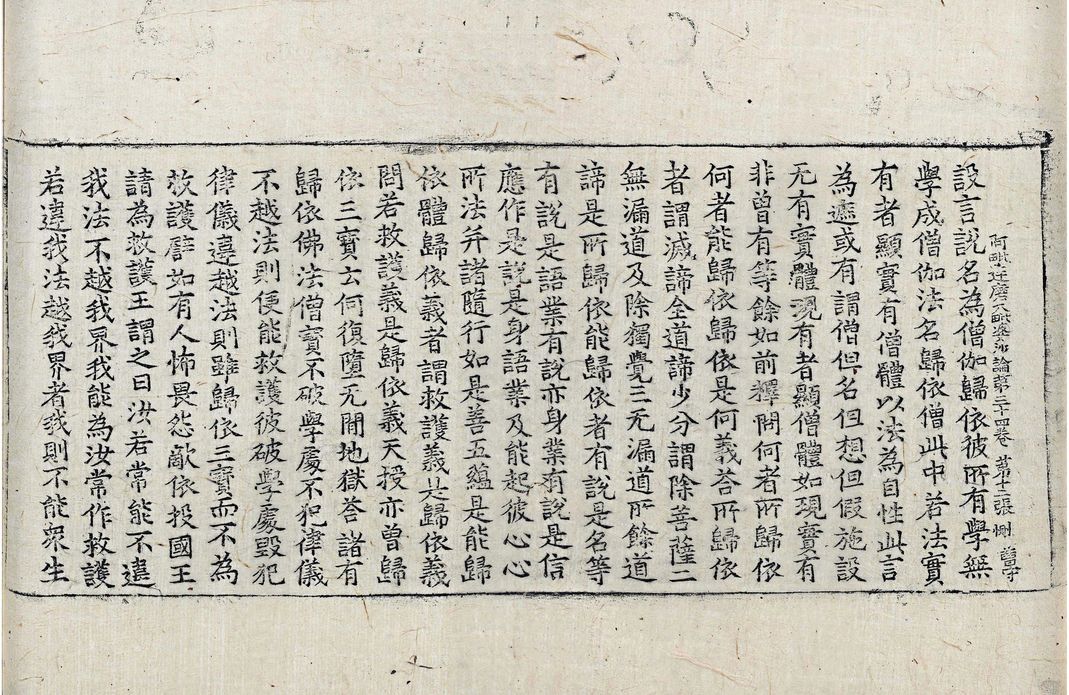 阿毗達磨大毗婆沙論第三十四卷 第十二張 惻
設言說名為僧伽歸依彼所有學無
學成僧伽法名歸依僧此中若法實
有者顯實有僧體以法為自性此言
為遮或有謂僧但名但想但假施設
无有實體現有者顯僧體如現實有
非曾有等餘如前釋問何者所歸依
何者能歸依歸依是何義荅所歸依
者謂滅諦全道諦少分謂除菩薩二
無漏道及除獨覺三无漏道所餘道
諦是所歸依能歸依者有說是名等
有說是語業有說亦身業有說是信
應作是說是身語業及能起彼心心
所法并諸隨行如是善五蘊是能歸
依體歸依義者謂救護義是歸依義
問若救護義是歸依義天授亦曾歸
依三寶云何復墮无間地獄荅諸有
歸依佛法僧寶不破學處不犯律儀
不越法則便能救護彼破學處毀犯
律儀違越法則雖歸依三寶而不為
救護譬如有人怖畏怨敵依投國王
請為救護王謂之曰汝若常能不違
我法不越我界我能為汝常作救護
若違我法越我界者我則不能衆生